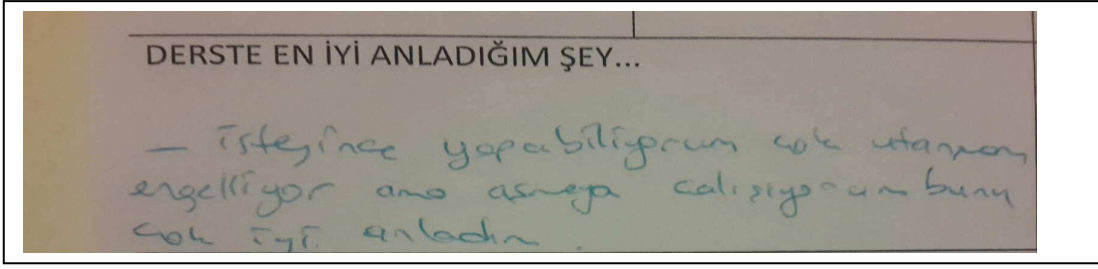 DERSTE EN İYİ ANLADIĞIM ŞEY...
– İsteyince yapabiliyorum çok utanmam
engelliyor ama aşmaya çalışıyorum bunu
çok iyi anladım.